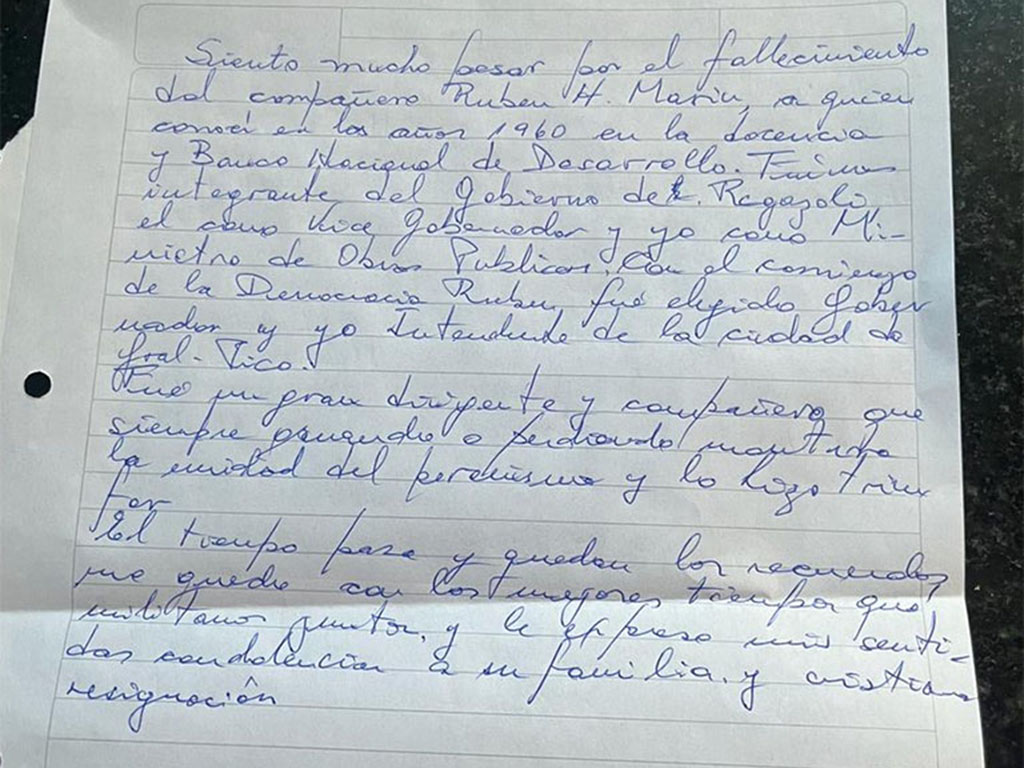 Siento mucho pesar por el fallecimiento
del compañero Ruben H. Marin, a quien
conoci en los años 1960 en la docencia
y Banco Nacional de Desarrollo. Fuimos
integrante del Gobierno de Regazoli,
el como Vice Gobernador y yo como Mi-
nistro de Obras Publicas. Con el comienzo
de la Democracia Ruben fué elegido Gober
nador y yo Intendente de la ciudad de
Gral. Pico.
Fué un gran dirigente y compañero que
siempre ganando o perdiendo mantuvo
la unidad del peronismo y lo hizo triun
far
El tiempo pasa y quedan los recuerdos,
me quedo con los mejores tiempos que
militamos juntos, y le expreso mis senti-
das condolencias a su familia, y cristiana
resignación